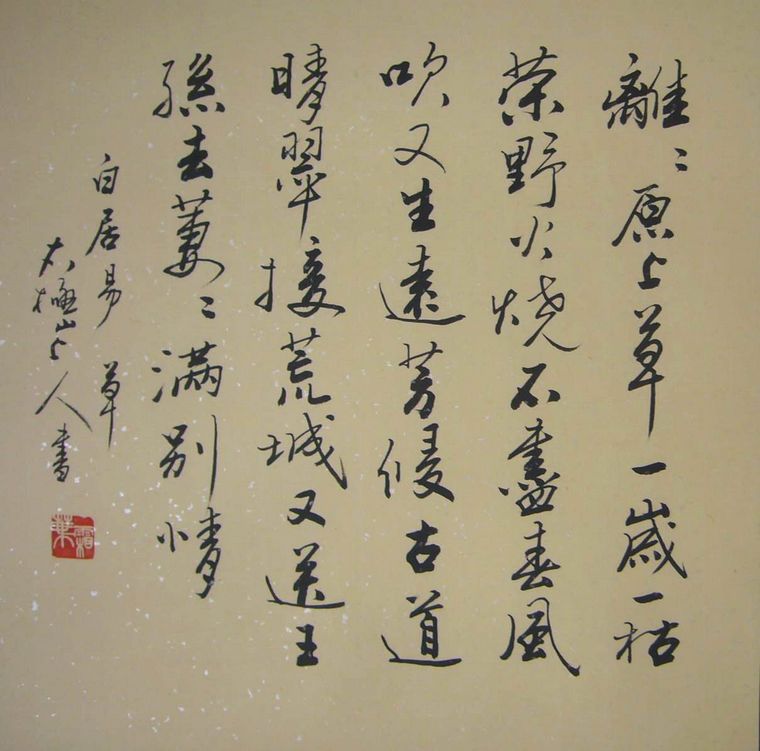 離〻原上草一歲一枯
荣野火烧不盡春風
吹又生遠芳侵古道
晴翠接荒城又送王
孫去萋〻满别情
白居易 草
太極山上人書
霜葉